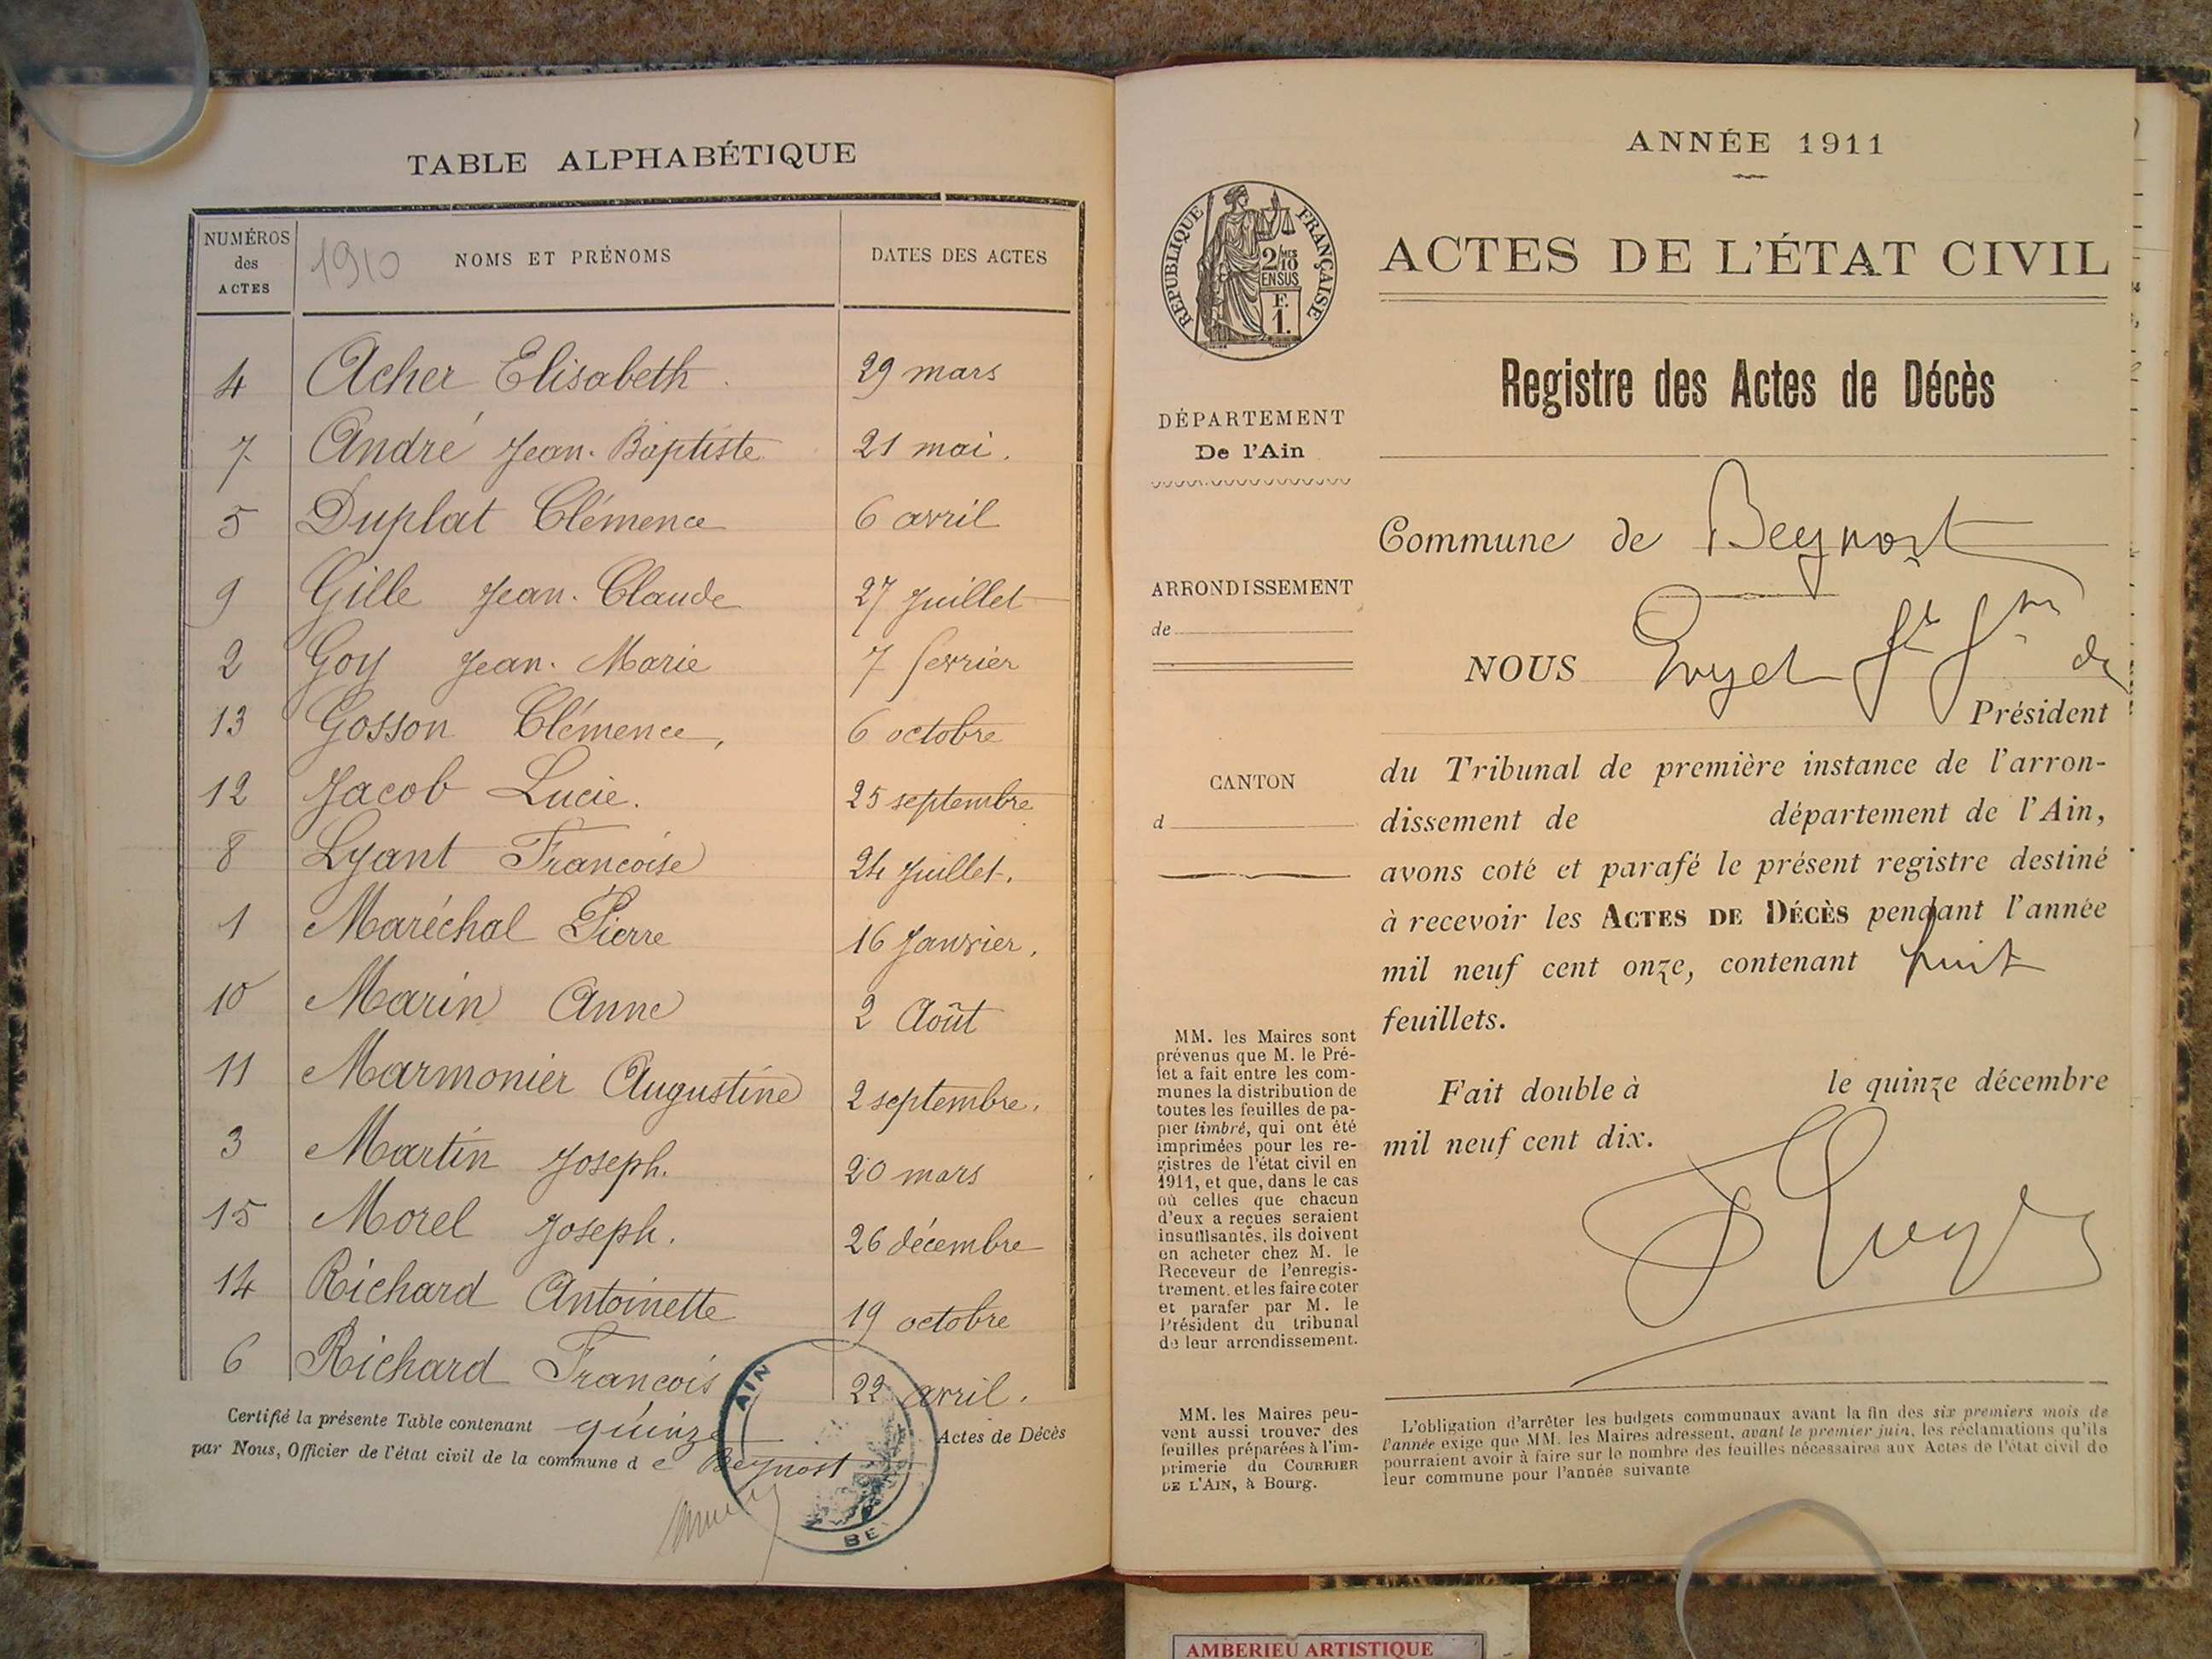 TABLE ALPHABÉTIQUE
NUMÉROS des ACTES
1910
NOMS ET PRÉNOMS
DATES DES ACTES
4 Acher Elisabeth 29 mars
7 André Jean-Baptiste 21 mai.
5 Duplat Clémence 6 avril
9 Gille Jean-Claude 27 Juillet
2 Goy Jean-Marie 7 fevrier
13 Gosson Clémence, 6 octobre
12 Jacob Lucie. 25 septembre
8 Lyant Francoise 24 Juillet.
1 Maréchal Pierre 16 Janvier.
10 Marin Anne 2 Août
11 Marmonier Augustine 2 septembre.
3 Martin Joseph. 20 mars
15 Morel Joseph. 26 décembre
14 Richard Antoinette 19 octobre
6 Richard Francois 22 avril.
Certifié la présente Table contenant quinze Actes de Décès
par Nous, Officier de l'état civil de la commune de Beynost
AIN
BEY
ANNÉE 1911
RÉPUBLIQUE FRANÇAISE
2/10 MES
EN SUS
F.
1.
ACTES DE L'ÉTAT CIVIL
Registre des Actes de Décès
DÉPARTEMENT
De l'Ain
Commune de Beynost
ARRONDISSEMENT
de
NOUS
Président
CANTON
d
du Tribunal de première instance de l'arron-
dissement de département de l'Ain,
avons coté et parafé le présent registre destiné
à recevoir les ACTES DE DÉCÈS pendant l'année
mil neuf cent onze, contenant huit
feuillets.
Fait double à le quinze décembre
mil neuf cent dix.
MM. les Maires sont
prévenus que M. le Pré-
fet a fait entre les com-
munes la distribution de
toutes les feuilles de pa-
pier timbré, qui ont été
imprimées pour les re-
gistres de l'état civil en
1911, et que, dans le cas
où celles que chacun
d'eux a reçues seraient
insuffisantes, ils doivent
en acheter chez M. le
Receveur de l'enregis-
trement, et les faire coter
et parafer par M. le
Président du tribunal
de leur arrondissement.
MM. les Maires peu-
vent aussi trouver des
feuilles préparées à l'im-
primerie du COURRIER
DE L'AIN, à Bourg.
L'obligation d'arrêter les budgets communaux avant la fin des six premiers mois de
l'année exige que MM. les Maires adressent, avant le premier juin, les réclamations qu'ils
pourraient avoir à faire sur le nombre des feuilles nécessaires aux Actes de l'état civil de
leur commune pour l'année suivante
AMBERIEU ARTISTIQUE